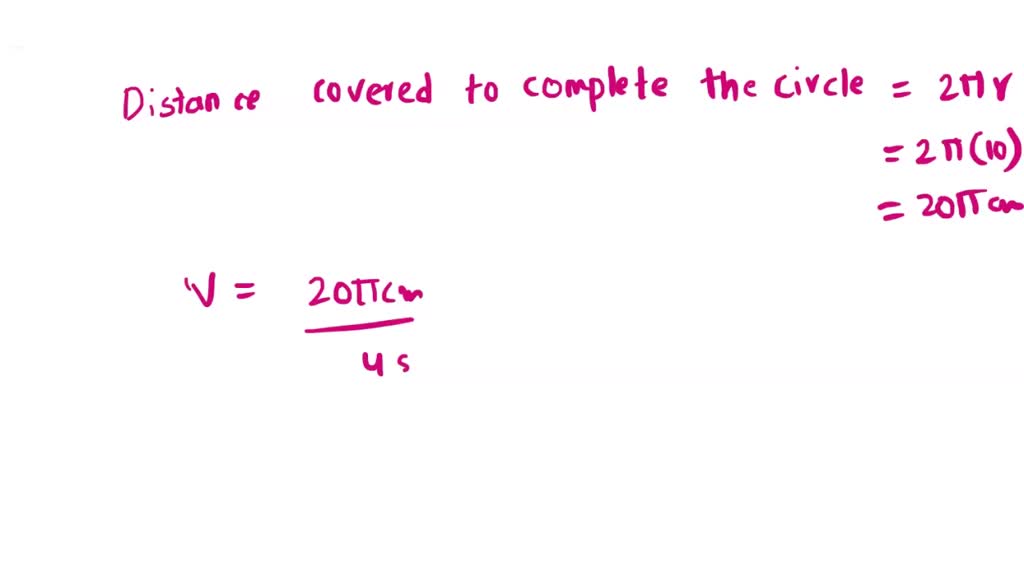 Distance covered to complete the circle = 2πr
= 2π(10)
= 20π cm
V = 20π cm
4 s